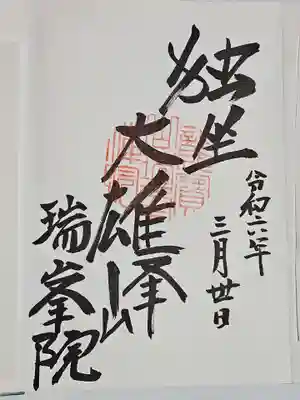 独坐
大雄峰
令和六年
三月廿日
瑞峯院